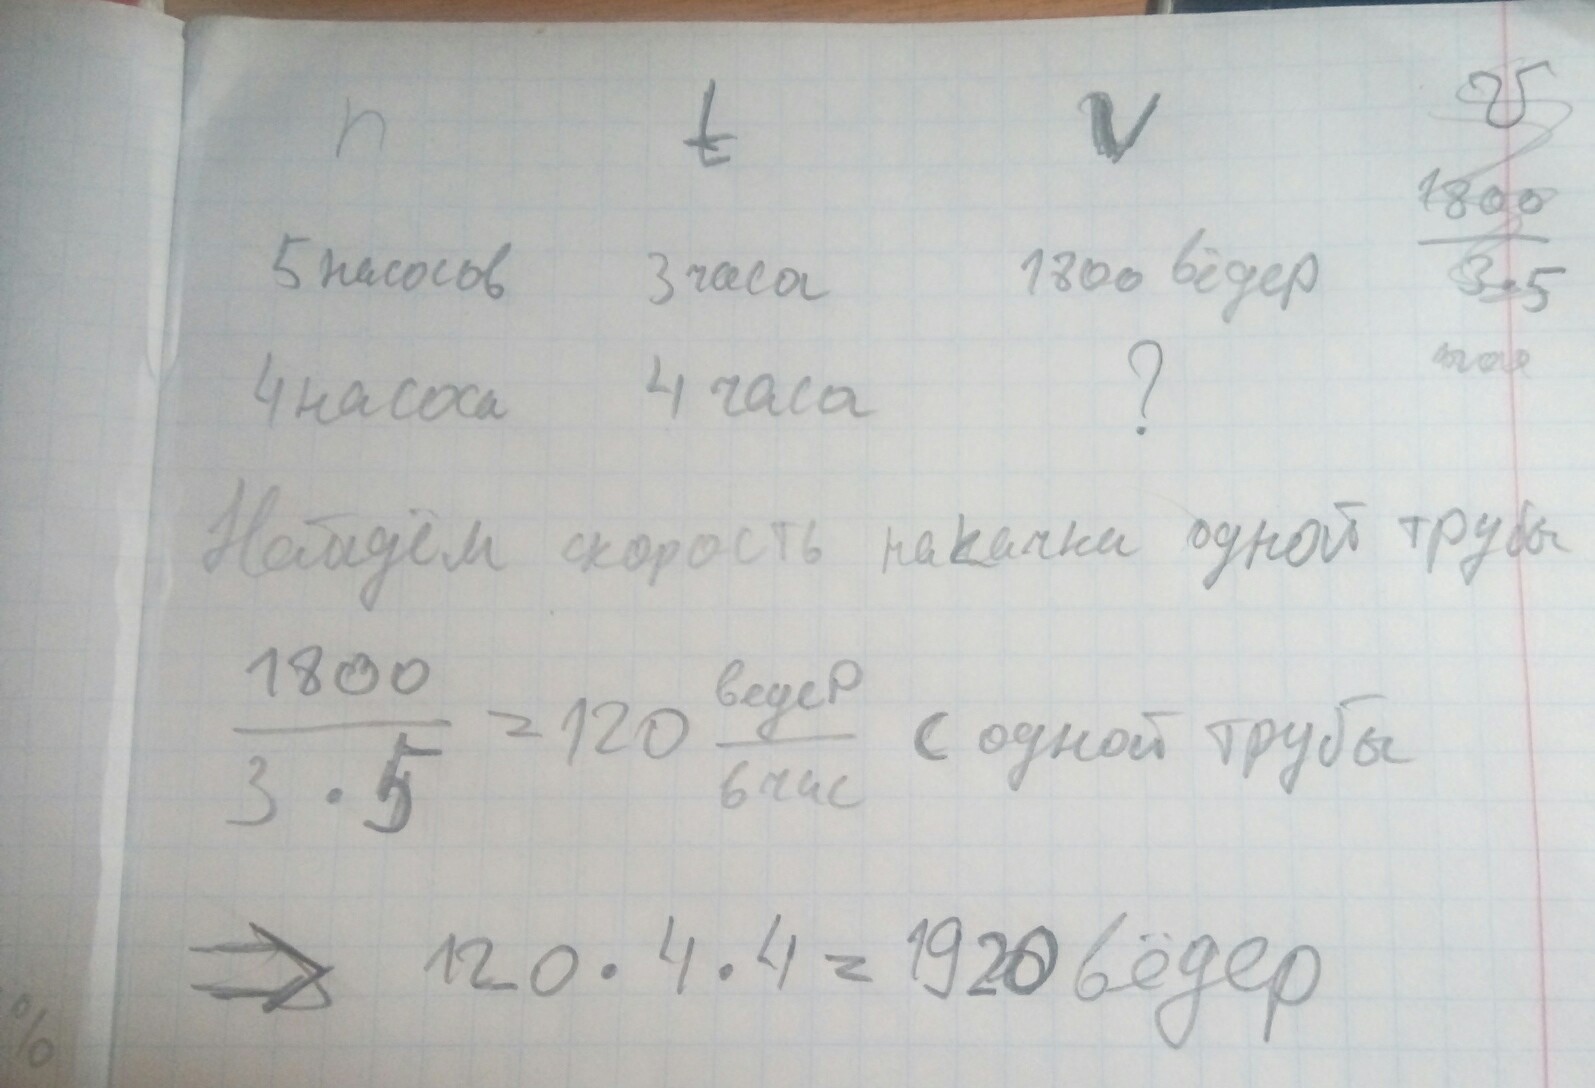 n t V
5 насосов 3 часа 1800 вёдер
4 насоса 4 часа ?
1800
3·5
Найдём скорость накачки одной трубы
1800 / 3 · 5 = 120 ведер / в час с одной трубы
⇒ 120 · 4 · 4 = 1920 вёдер
%